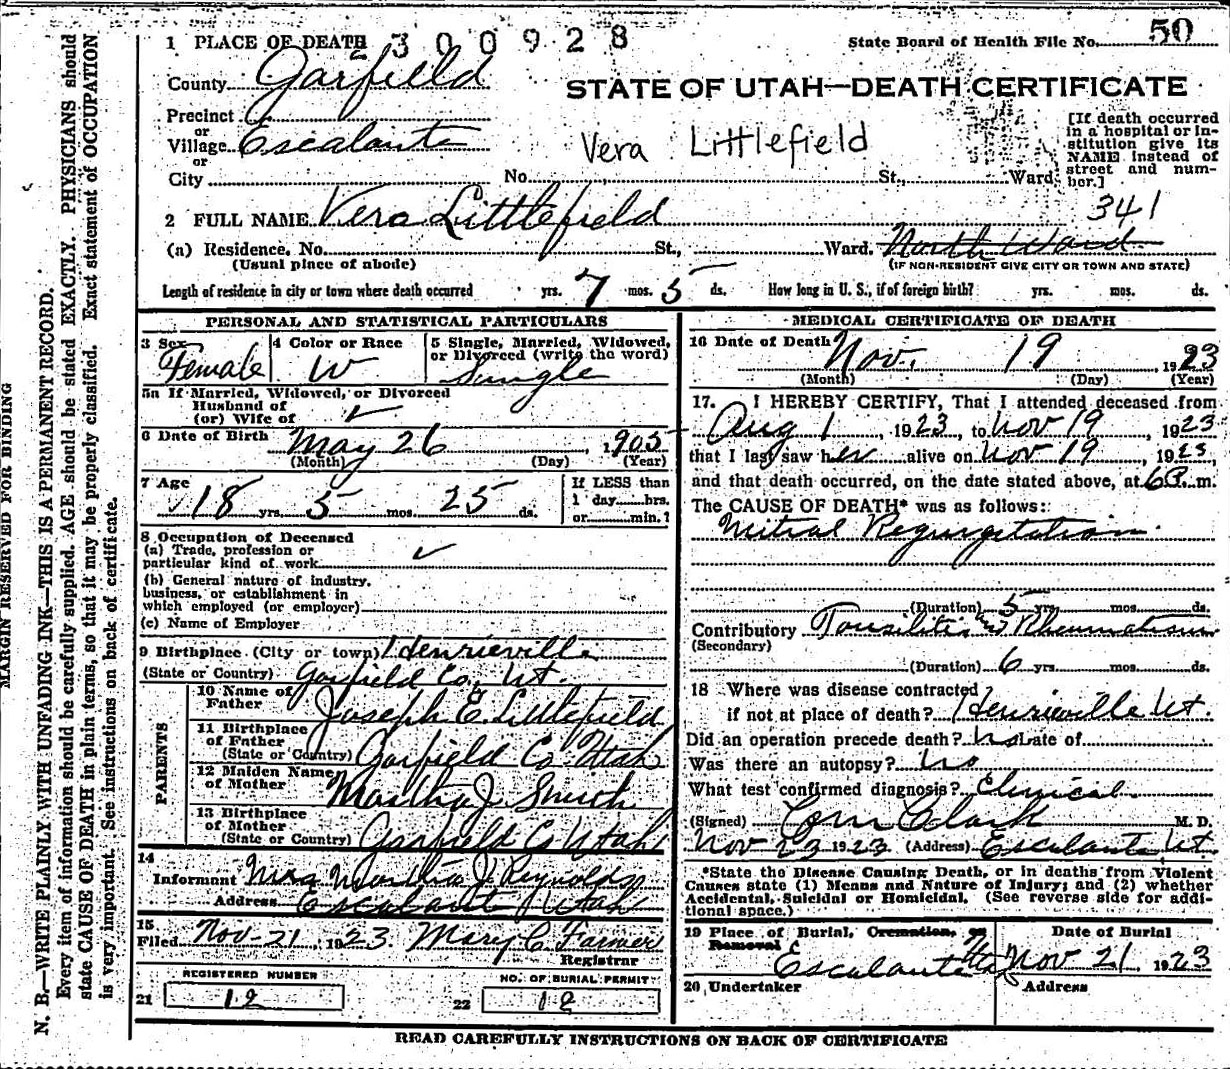 1 PLACE OF DEATH 2300928
State Board of Health File No. 50
County Garfield
STATE OF UTAH—DEATH CERTIFICATE
Precinct
or
Village Escalante
or
City No. St., Ward
Vera Littlefield
[If death occurred
in a hospital or in-
stitution give its
NAME instead of
street and num-
ber.]
341
2 FULL NAME Vera Littlefield
(a) Residence. No. St., Ward, North Ward
(Usual place of abode)
(IF NON-RESIDENT GIVE CITY OR TOWN AND STATE)
Length of residence in city or town where death occurred yrs. 7 mos. 5 ds. How long in U. S., if of foreign birth? yrs. mos. ds.
PERSONAL AND STATISTICAL PARTICULARS
3 Sex Female
4 Color or Race W
5 Single, Married, Widowed,
or Divorced (write the word)
Single
5a If Married, Widowed, or Divorced
Husband of
(or) Wife of ✓
6 Date of Birth May 26, 1905
(Month) (Day) (Year)
7 Age 18 yrs. 5 mos. 25 ds.
If LESS than
1 day hrs.
or min.?
8 Occupation of Deceased
(a) Trade, profession or
particular kind of work ✓
(b) General nature of industry,
business, or establishment in
which employed (or employer)
(c) Name of Employer
9 Birthplace (City or town) Henrieville
(State or Country) Garfield Co., Ut.
PARENTS
10 Name of
Father Joseph E. Littlefield
11 Birthplace
of Father
(State or Country) Garfield Co. Utah
12 Maiden Name
of Mother Martha J.
13 Birthplace
of Mother
(State or Country) Garfield Co Utah
14
Informant Mrs Martha J. Reynolds
Address Escalante Utah
15
Filed Nov-21, 1923. Mary C. Farmer
Registrar
REGISTERED NUMBER
21 12
NO. OF BURIAL PERMIT
22 12
MEDICAL CERTIFICATE OF DEATH
16 Date of Death Nov. 19, 1923
(Month) (Day) (Year)
17. I HEREBY CERTIFY, That I attended deceased from
Aug 1, 1923, to Nov 19, 1923
that I last saw her alive on Nov 19, 1923,
and that death occurred, on the date stated above, at 6 P. m.
The CAUSE OF DEATH* was as follows:
Mitral Regurgitation.
(Duration) 5 yrs. mos. ds.
Contributory Tonsilitis and Rheumatism
(Secondary)
(Duration) 6 yrs. mos. ds.
18 Where was disease contracted
if not at place of death? Henrieville Ut.
Did an operation precede death? no Date of
Was there an autopsy? no
What test confirmed diagnosis? Clinical.
(Signed) Clark M. D.
Nov 23 1923. (Address) Escalante Ut.
*State the Disease Causing Death, or in deaths from Violent
Causes state (1) Means and Nature of Injury; and (2) whether
Accidental, Suicidal or Homicidal. (See reverse side for addi-
tional space.)
19 Place of Burial, Cremation, or
Removal
Escalante Uta
Date of Burial
Nov 21 1923
20 Undertaker
Address
READ CAREFULLY INSTRUCTIONS ON BACK OF CERTIFICATE
MARGIN RESERVED FOR BINDING
N. B.—WRITE PLAINLY WITH UNFADING INK—THIS IS A PERMANENT RECORD.
Every item of information should be carefully supplied. AGE should be stated EXACTLY. PHYSICIANS should
state CAUSE OF DEATH in plain terms, so that it may be properly classified. Exact statement of OCCUPATION
is very important. See instructions on back of certificate.